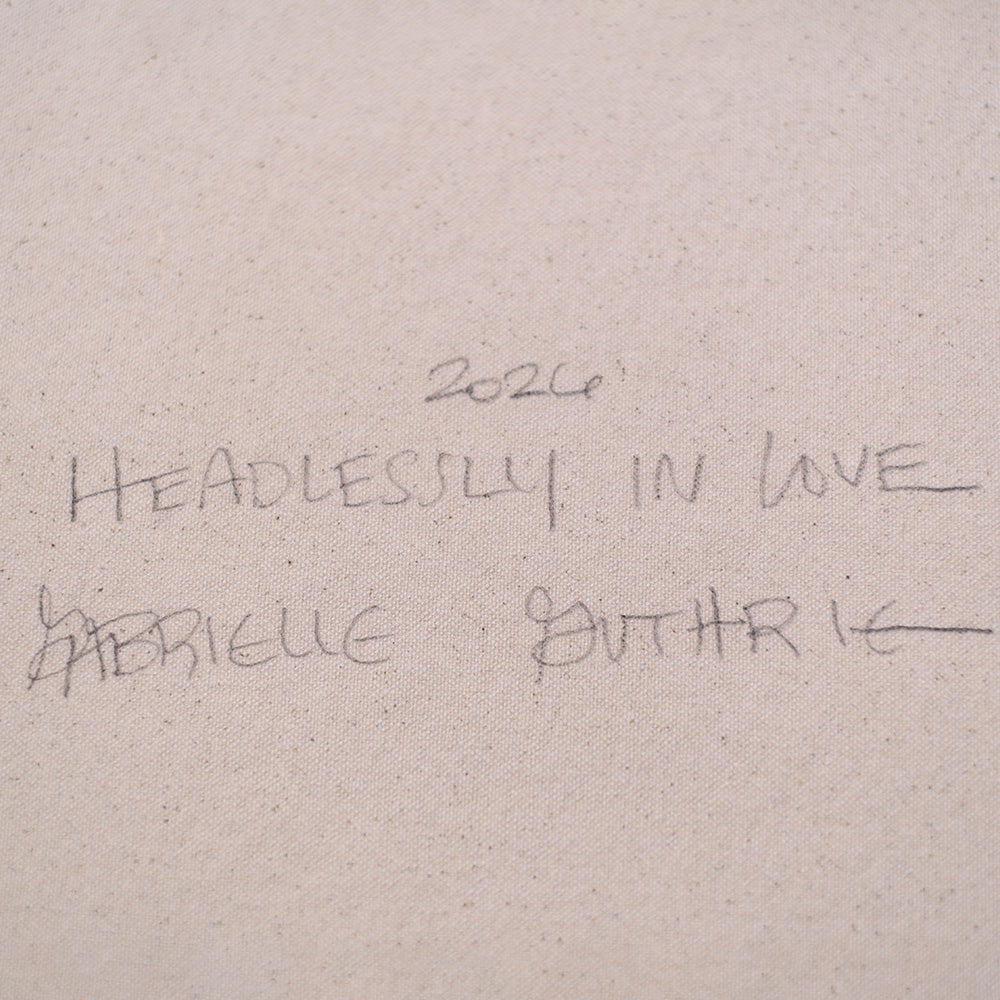 2026
HEADLESSLY IN LOVE
GABRIELLE GUTHRIE